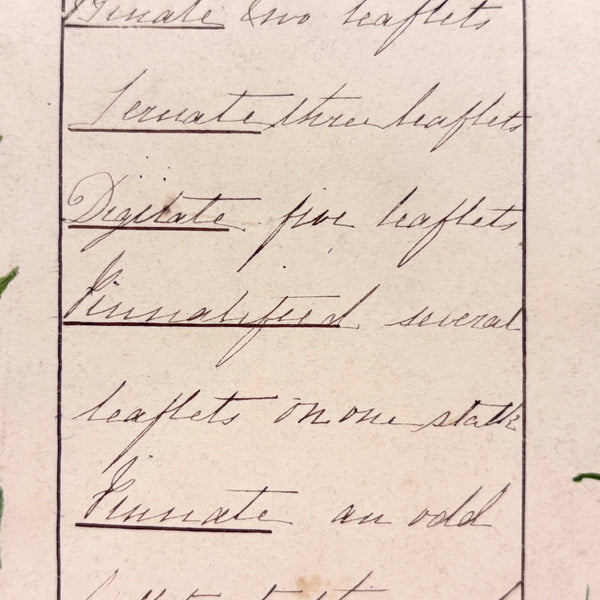 Binate two leaflets
Ternate three leaflets
Digitate five leaflets
Pinnatified several
leaflets on one stalk
Pinnate an odd